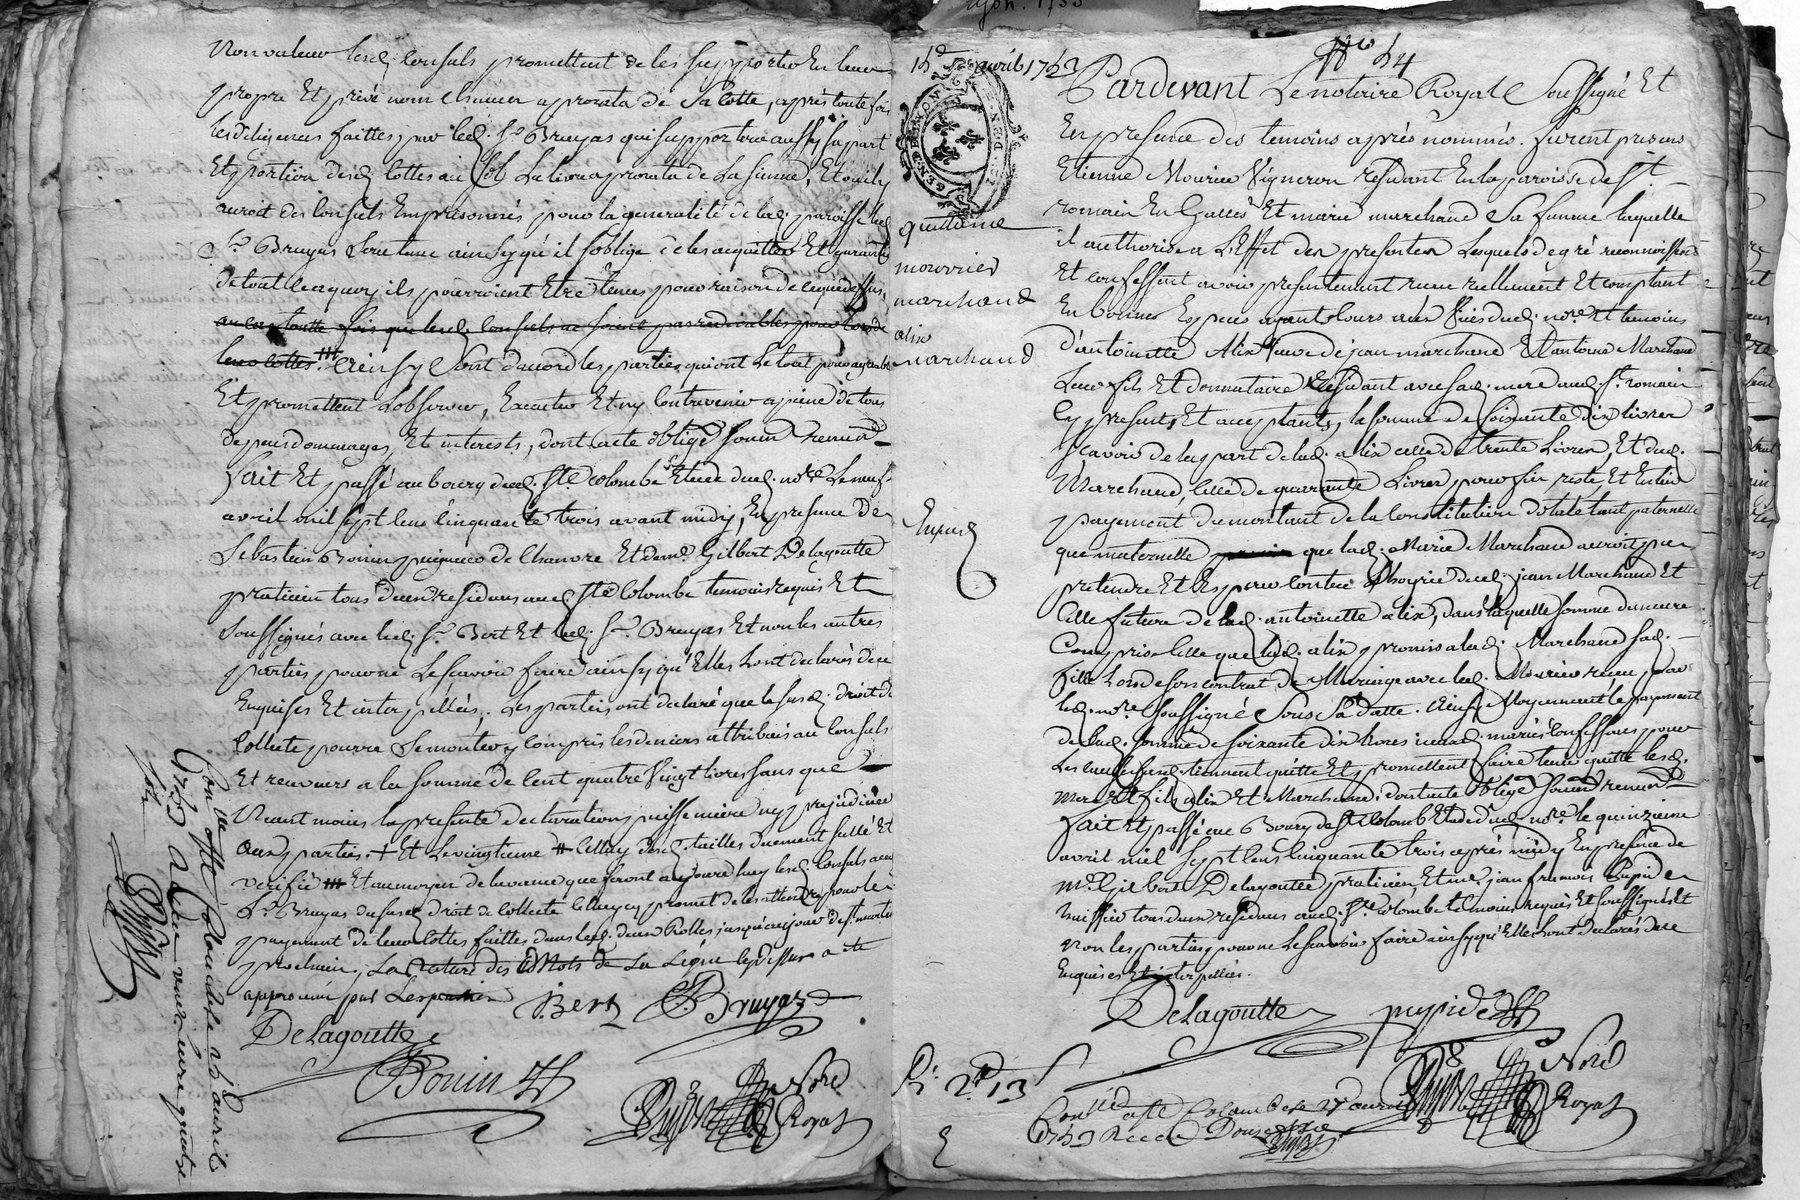 Non valeur lesd. Consuls promettent de les supporter En leur
propre Et privé nom chacun a prorata de Sa Cotte, après toute fois
les diligences faittes, par led. Sr. Bruyas qui supportera aussy sa part
Et portion desd. Cottes au Sol La livre a prorata de La Sienne, Et ou il y
auroit des Consuls Emprisonnés pour la generalité de lad. paroisse led.
Sr. Bruyas Sera tenu ainsy qu'il S'oblige de les acquitter Et garantir
de tout ce a quoy ils pourroient Etre tenus pour raison de ce que dessus,
leurs Cottes. Ainsy Sont d'accord les parties qui ont Le tout pour agreable
Et promettent L'observer, Executer Et n'y Contrevenir a peine de tous
depens dommages, Et interests, dont acte obligé Soumis renoncé
fait Et passé au bourg dud. Ste. Colombe Etude dud. nore. Le neuf
avril mil sept Cens Cinquante trois avant midy, En presence de
Sebastien Bonin peigneur de Chanvre Et de me. Gilbert Delagoutte
praticien tous deux residans aud. Ste. Colombe temoins requis Et
Soussignés avec led. Sr. Bert Et led. Sr. Bruyas Et non les autres
parties pour ne Le scavoir faire ainsy qu'Elles L'ont declaré de ce
Enquises Et interpellées. Les parties ont declaré que le susd. droit de
Collecte pourra Se monter y Compris les deniers attribués au Consuls
Et receveurs a la Somme de Cent quatre Vingt livres sans que
Neant moins la presente declaration puisse nuire ny prejudicier
Aux parties. + Et Le vingtieme # Celluy desd. tailles duement scellé Et
verifié ### Et au moyen de lavance que feront aujourd'huy lesd. Consuls aud.
Sr. Bruyas du susd. droit de Collecte Celluy cy promet de les attendre pour le
payement de leur Cottes faittes dans lesd. deux Rolles jusqu'au jour de St. martin
prochain, La rature des Mots de La Ligne cy dessus a été
approuvée par Les parties
J. Bert C. Bruyas
Delagoutte
Bonin
Nore
Royal
Con.lé a Ste Colombe le 15 avril
1753 a
15e avril 1753
GEN. DE LYON
quittance
mouvrier
marchand
alix
marchand
Exped.
No 54
Pardevant Le notaire Royal Soussigné Et
En presence des temoins après nommés. furent presens
Etienne Mourier Vigneron residant En la paroisse de St.
romain En Galles Et marie marchand Sa femme laquelle
il authorise a L'Effet des presentes Lesquels de gré reconnoissent
Et confessent avoir presentement recu reellement Et comptant
En bonnes Especes ayant Cours aux Vües dud. nore. Et temoins
d'antoinette Alix veuve de jean marchand Et antoine Marchand
Leur fils Et donnataire residant avec sad. mere aud. St. romain
Cy presents Et acceptants, la somme de Soixante dix livres
scavoir de la part de lad. alix celle de trente Livres, Et dud.
Marchand, Celle de quarante Livres pour fin reste Et Entier
payement du montant de la Constitution dotale tant paternelle
que maternelle que lad. Marie Marchand auroit peu
pretendre Et Esperer Contre L'hoyrie dud. jean Marchand Et
Celle future de lad. antoinette alix, dans laquelle somme demeure
Comprise Celle que lad. alix promis a lad. Marchand Sad.
fille Lors de son contrat de Mariage avec led. Mourier recu par
led. nore. Soussigné Sous Sa datte. Ainsy Moyennant le payement
de lad. Somme de soixante dix livres iceux mariés Confessans pour
Mere Et fils alix Et Marchand. dont acte obligé Soumis renoncé
fait Et passé au Bourg de Ste Colombe Etude dud. nore. le quinzieme
avril mil Sept Cens Cinquante trois après midy En presence de
me. Gilbert Delagoutte praticien Et me. jean francois Pupide
huissier tous deux residans aud. Ste. Colombe temoins requis Et soussignés Et
non les parties pour ne Le scavoir faire ainsy qu'Elles ont declaré de ce
Enquises Et interpellées.
Delagoutte pupide
Nore
Royal
Con.lé a Ste Colombe le 27 avril
1753 Recu Douze s